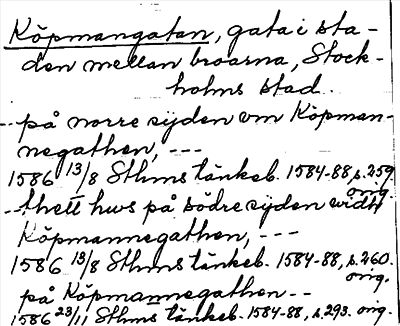 Köpmangatan, gata i sta-
den mellan broarna, Stock-
holms stad.
-- på norre sijden vm Köpman-
negathen, ---
1586 13/8 Sthms tänkeb. 1584-88, s. 259
orig.
-- thett hws på södre sijden widh
Köpmannegathen, ---
1586 13/8 Sthms tänkeb. 1584-88, s. 260.
orig.
på Köpmannegathen --
1586 23/11 Sthms tänkeb. 1584-88, s. 293. orig.